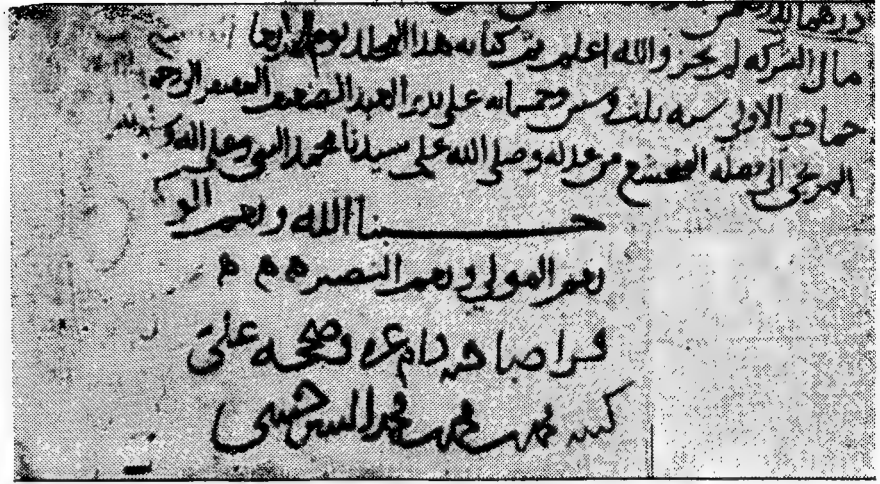 درهما
مال الشركه لم يجز والله اعلم تمت كتابه هذا المجلد يوم الاربعا
جمادى الاولى سنه ثلث وستين وخمسمائه على يدى العبد الضعيف الفقير الى رحمه
المرتجى الى فضله من عدله وصلى الله على سيدنا محمد النبى وعلى اله
حسبنا الله ونعم الو
نعم المولى ونعم النصير
قرا صاحبه دام عزه وصححه على
كتبه محمد بن محمد بن محمد السرخسى